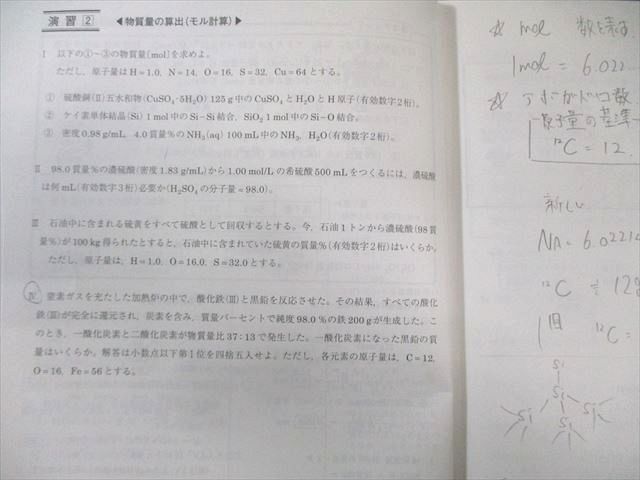 演習 2 ◀物質量の算出(モル計算)▶
Ⅰ 以下の①~③の物質量[mol]を求めよ。
ただし,原子量はH=1.0,N=14,O=16,S=32,Cu=64とする。
① 硫酸銅(Ⅱ)五水和物(CuSO₄·5H₂O) 125g中のCuSO₄とH₂OとH原子(有効数字2桁)。
② ケイ素単体結晶(Si) 1mol中のSi-Si結合,SiO₂ 1mol中のSi-O結合。
③ 密度0.98g/mL,4.0質量%のNH₃(aq) 100mL中のNH₃,H₂O(有効数字2桁)。
Ⅱ 98.0質量%の濃硫酸(密度1.83g/mL)から1.00mol/Lの希硫酸500mLをつくるには,濃硫酸
は何mL(有効数字3桁)必要か(H₂SO₄の分子量=98.0)。
Ⅲ 石油中に含まれる硫黄をすべて硫酸として回収するとする。今,石油1トンから濃硫酸(98質
量%)が100kg得られたとすると,石油中に含まれていた硫黄の質量%(有効数字2桁)はいくらか。
ただし,原子量は,H=1.0,O=16.0,S=32.0とする。
Ⅳ 窒素ガスを充たした加熱炉の中で,酸化鉄(Ⅲ)と黒鉛を反応させた。その結果,すべての酸化
鉄(Ⅲ)が完全に還元され,炭素を含み,質量パーセントで純度98.0%の鉄200gが生成した。こ
のとき,一酸化炭素と二酸化炭素が物質量比37:13で発生した。一酸化炭素になった黒鉛の質
量はいくらか。解答は小数点以下第1位を四捨五入せよ。ただし,各元素の原子量は,C=12,
O=16,Fe=56とする。
☆ mol 数を表す
1mol = 6.022
☆ アボガドロ数
原子量の基準
¹²C = 12.
新しい
NA = 6.0221
¹²C ≒ 12g
旧 ¹²C =
Si
Si
Si Si Si